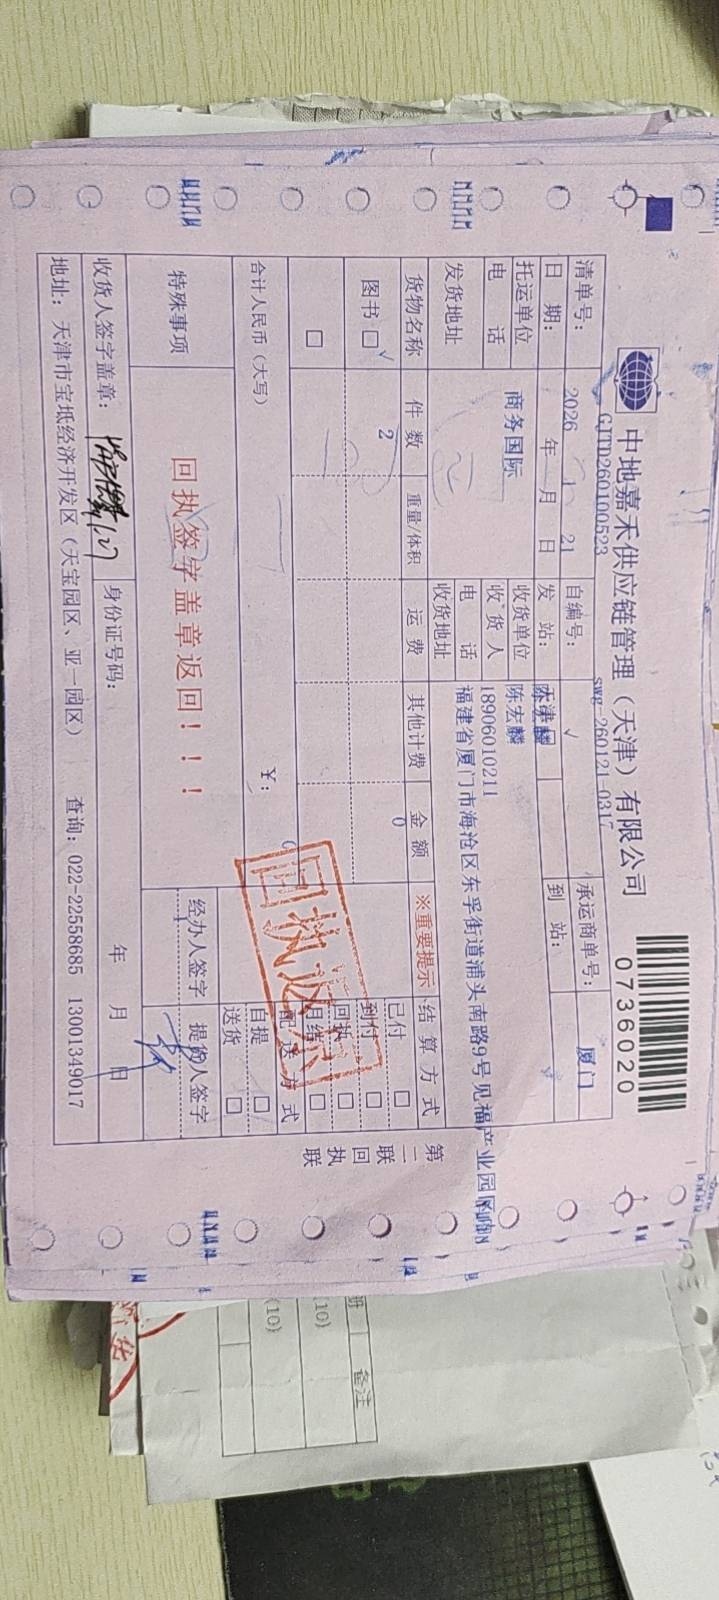 中地嘉禾供应链管理（天津）有限公司
0736020
清单号： GJTD260100523 自编号： swg-260121-0317 承运商单号：
日 期： 2026 年 1 月 21 日 发 站： 天津 到 站： 厦门
托运单位 商务国际 收货单位 陈宏麟
电 话 收 货 人 陈宏麟
电 话 18906010211
发货地址 收货地址 福建省厦门市海沧区东孚街道浦头南路9号见福产业园
货物名称 件 数 重量/体积 运 费 其他计费 金 额 ※重要提示 结 算 方 式
图书 □ √ 2 0 已付 □
到付 □
回执 □
□ 月结 □
合计人民币（大写） ￥： 0 配 送 方 式
自提 □
送货 □
特殊事项 回执签字盖章返回！！！ 经办人签字 提货人签字
回执返
收货人签字盖章： 身份证号码： 年 月 日
地址：天津市宝坻经济开发区（天宝园区、亚一园区） 查询：022-22558685 13001349017
第二联 回执联
册 备注
(10)
(10)